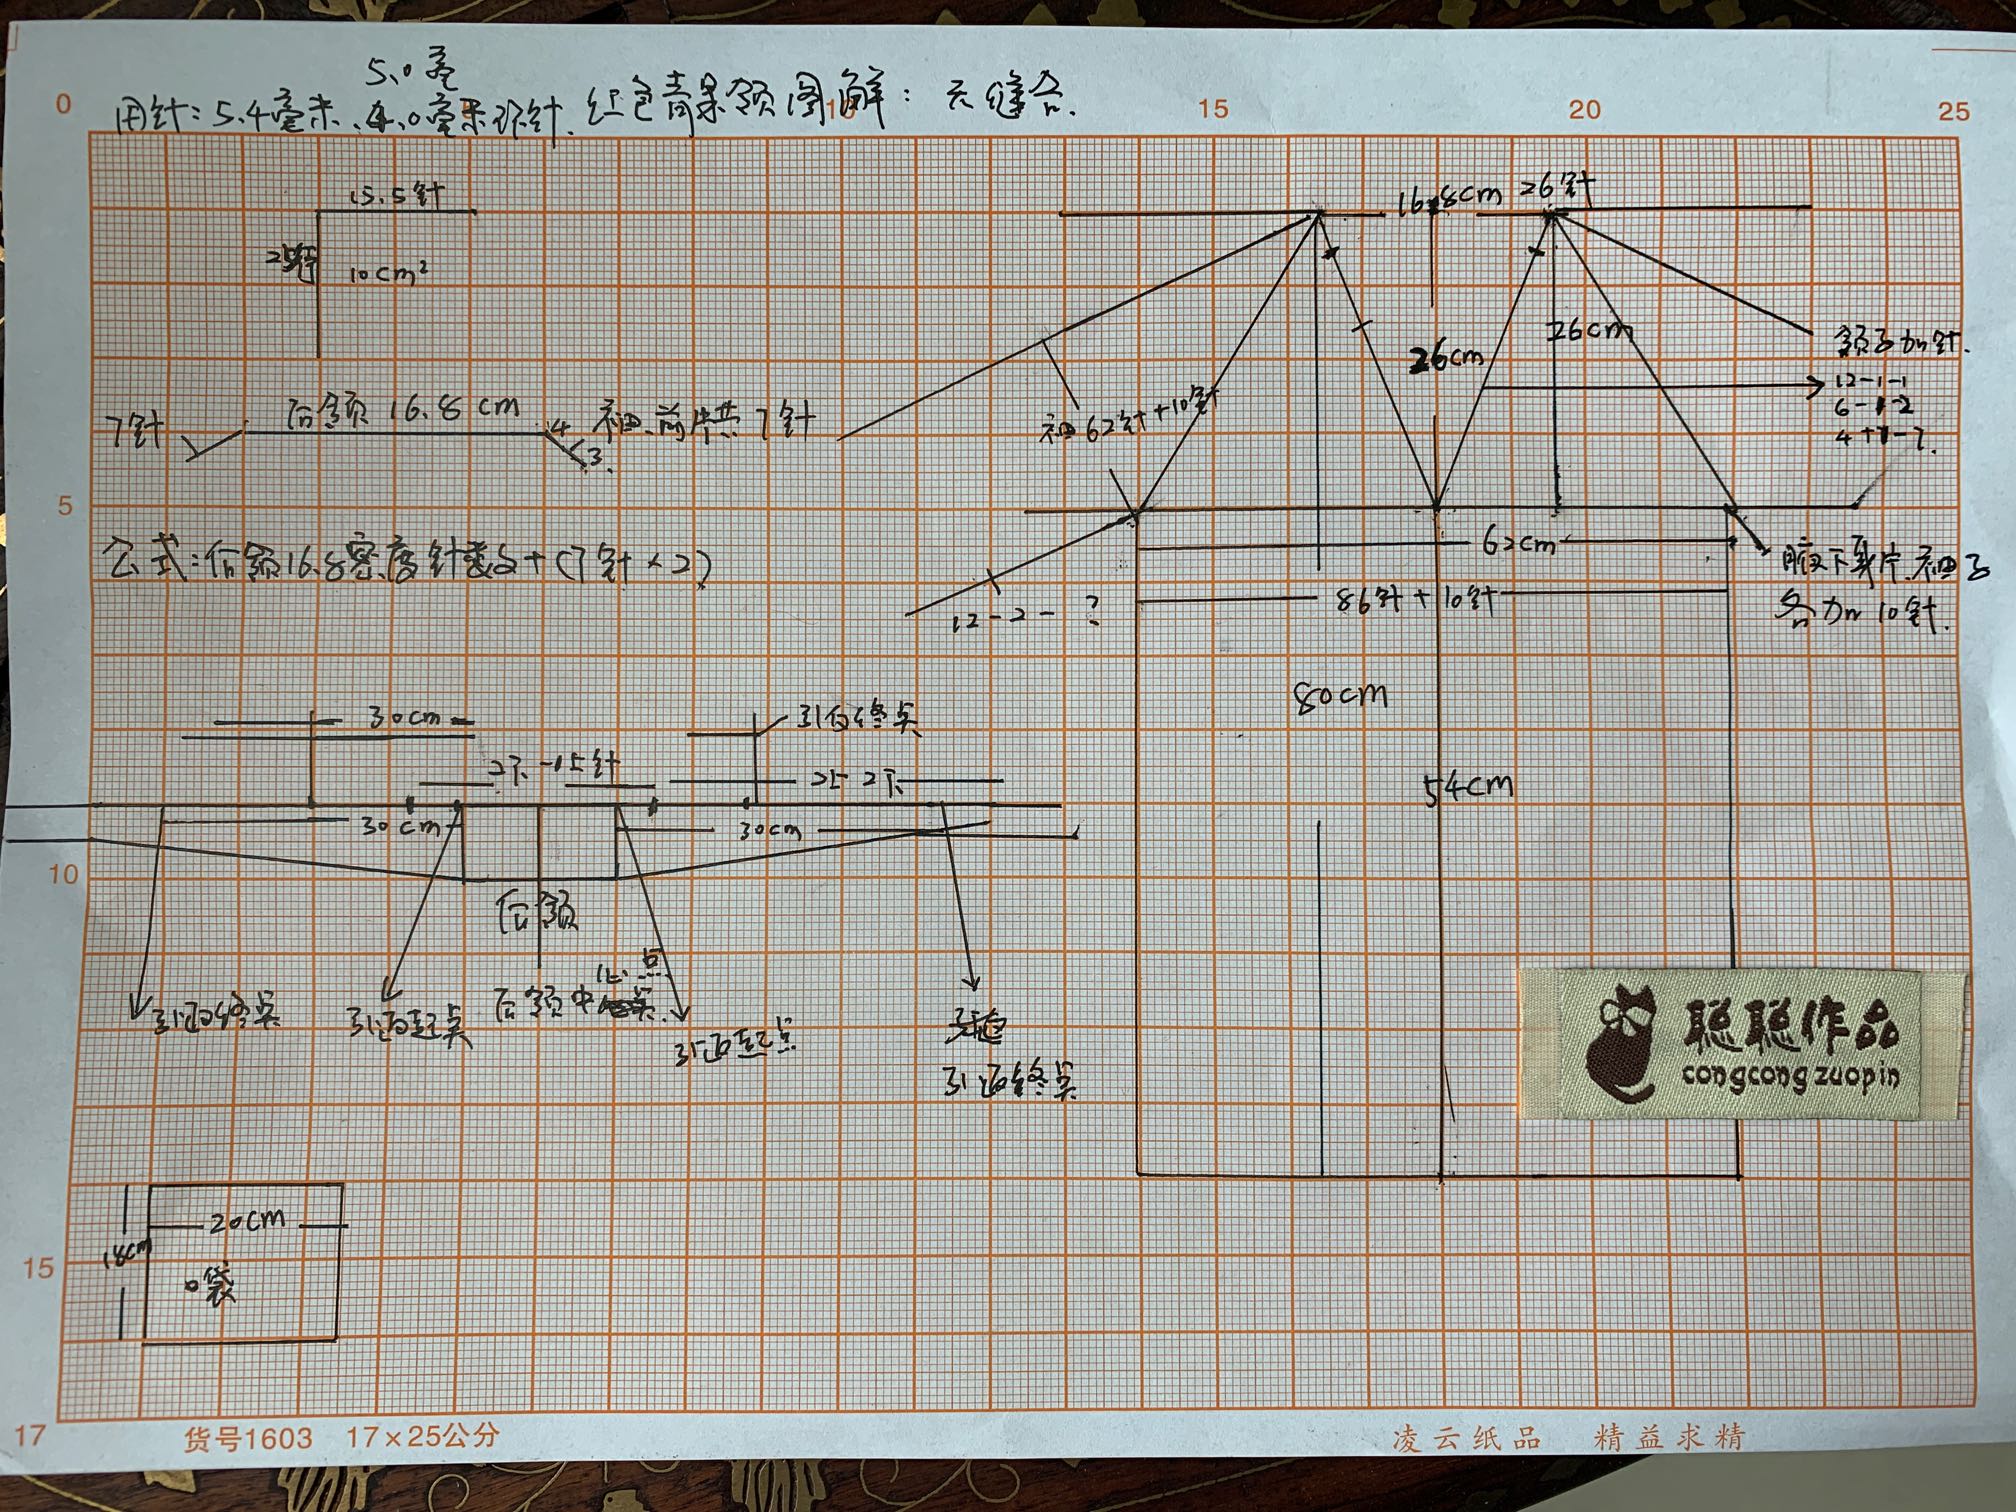 5.0毫
0
用针:5.4毫米.4.0毫米环针.红色青果领图解:无缝合.
10
15
20
25
15.5针
25行
10cm²
16.8cm 26针
26cm
26cm
领子加针.
12-1-1
6-1-2
4+1-7.
7针
后领16.8cm
4
3.
袖.前片共7针
袖62针+10针
5
公式:后领16.8密度针数+(7针×2)
62cm
86针+10针
腋下身片.袖子
各加10针.
12-2-?
80cm
54cm
30cm
引返终点
2下-1上针
2上2下
30cm
30cm
10
后领
引返终点
引返起点
后领中心点
引返起点
引返终点
聪聪作品
congcong zuopin
20cm
18cm
口袋
15
17
货号1603 17×25公分
凌云纸品 精益求精